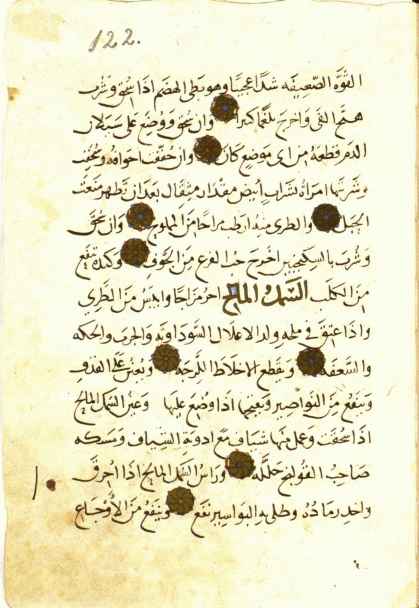 122.
القوّه الضّعيفه شدًا عجيبًا وهو بطى الهضم اذا سُحق وشُرب
هيّج القى واخرج بلغمًا كثيرًا وان سُحق ووُضع على سيلان
الدم قطعهُ من اى موضع كان وان جُففت اجوافه وسُحقت
وشربتها امراة بشراب ابيض مقدار مثقال بعد ان تطهر منعت
الحبل والطرى منه ارطب مزاجًا من المملوح وان سُحق
وشُرب بالسكنجبين اخرج حب القرع من الجوف وكبده تنفع
من الكلب السّمك المالح احر مزاجًا وايبس من الطّرى
واذا عتق فى ملحه ولد الاعلال السّوداويه والجرب والحكه
والسّعفه ويقطع الاخلاط اللّزجه ويُعين على القذف
وينفع من النّواصير ويفتحها اذا وُضع عليها وعين السّمك المالح
اذا سُحقت وعمل منها شياف مع ادوية الشّياف ومسكه
صاحب القولنج حلّله وراس السّمك المالح اذا اُحرق
واخذ رماده وطلى به البواسير نفع وينفع من الاوجاع